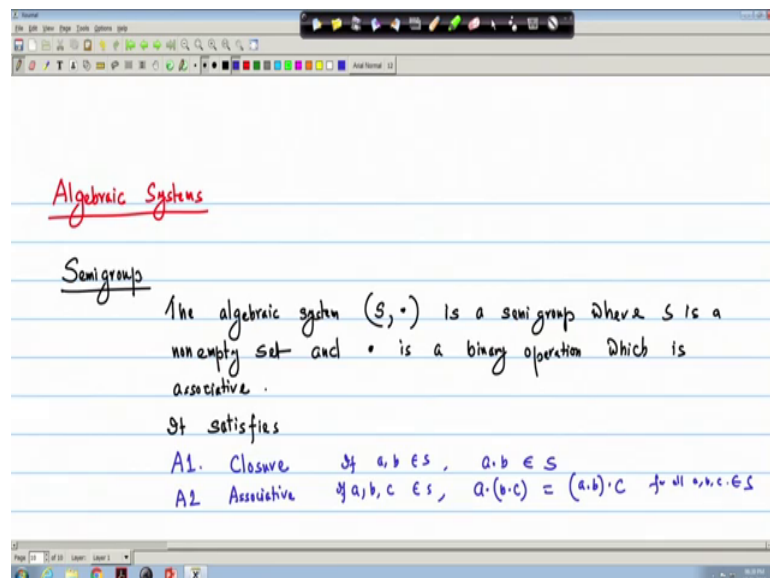 Journal
File Edit View Page Tools Options Help
Arial Normal 12
Algebraic Systems
Semigroup
The algebraic system (S, •) is a semigroup where S is a
nonempty set and • is a binary operation which is
associative.
It satisfies
A1. Closure If a, b ∈ S, a·b ∈ S
A2 Associative If a, b, c ∈ S, a·(b·c) = (a·b)·c for all a, b, c ∈ S
Page 10 of 10 Layer: Layer 1